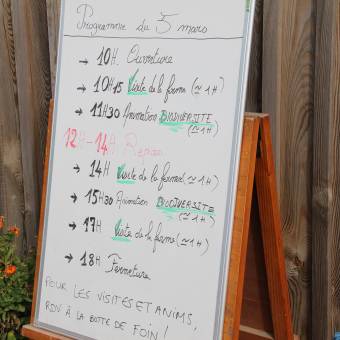 Programme du 5 mars
→ 10H Ouverture
→ 10H15 Visite de la ferme (≃ 1H)
→ 11H30 Animation BIODIVERSITE
(≃ 1H)
12H-14H Repas
→ 14H Visite de la ferme (≃ 1H)
→ 15H30 Animation BIODIVERSITE
(≃ 1H)
→ 17H Visite de la ferme (≃ 1H)
→ 18H. Fermeture
POUR LES VISITES ET ANIMS,
RDV À LA BOTTE DE FOIN !